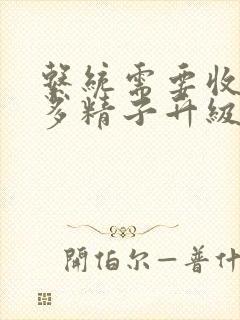 繫統需要收
多精子升級
開伯尔—普什